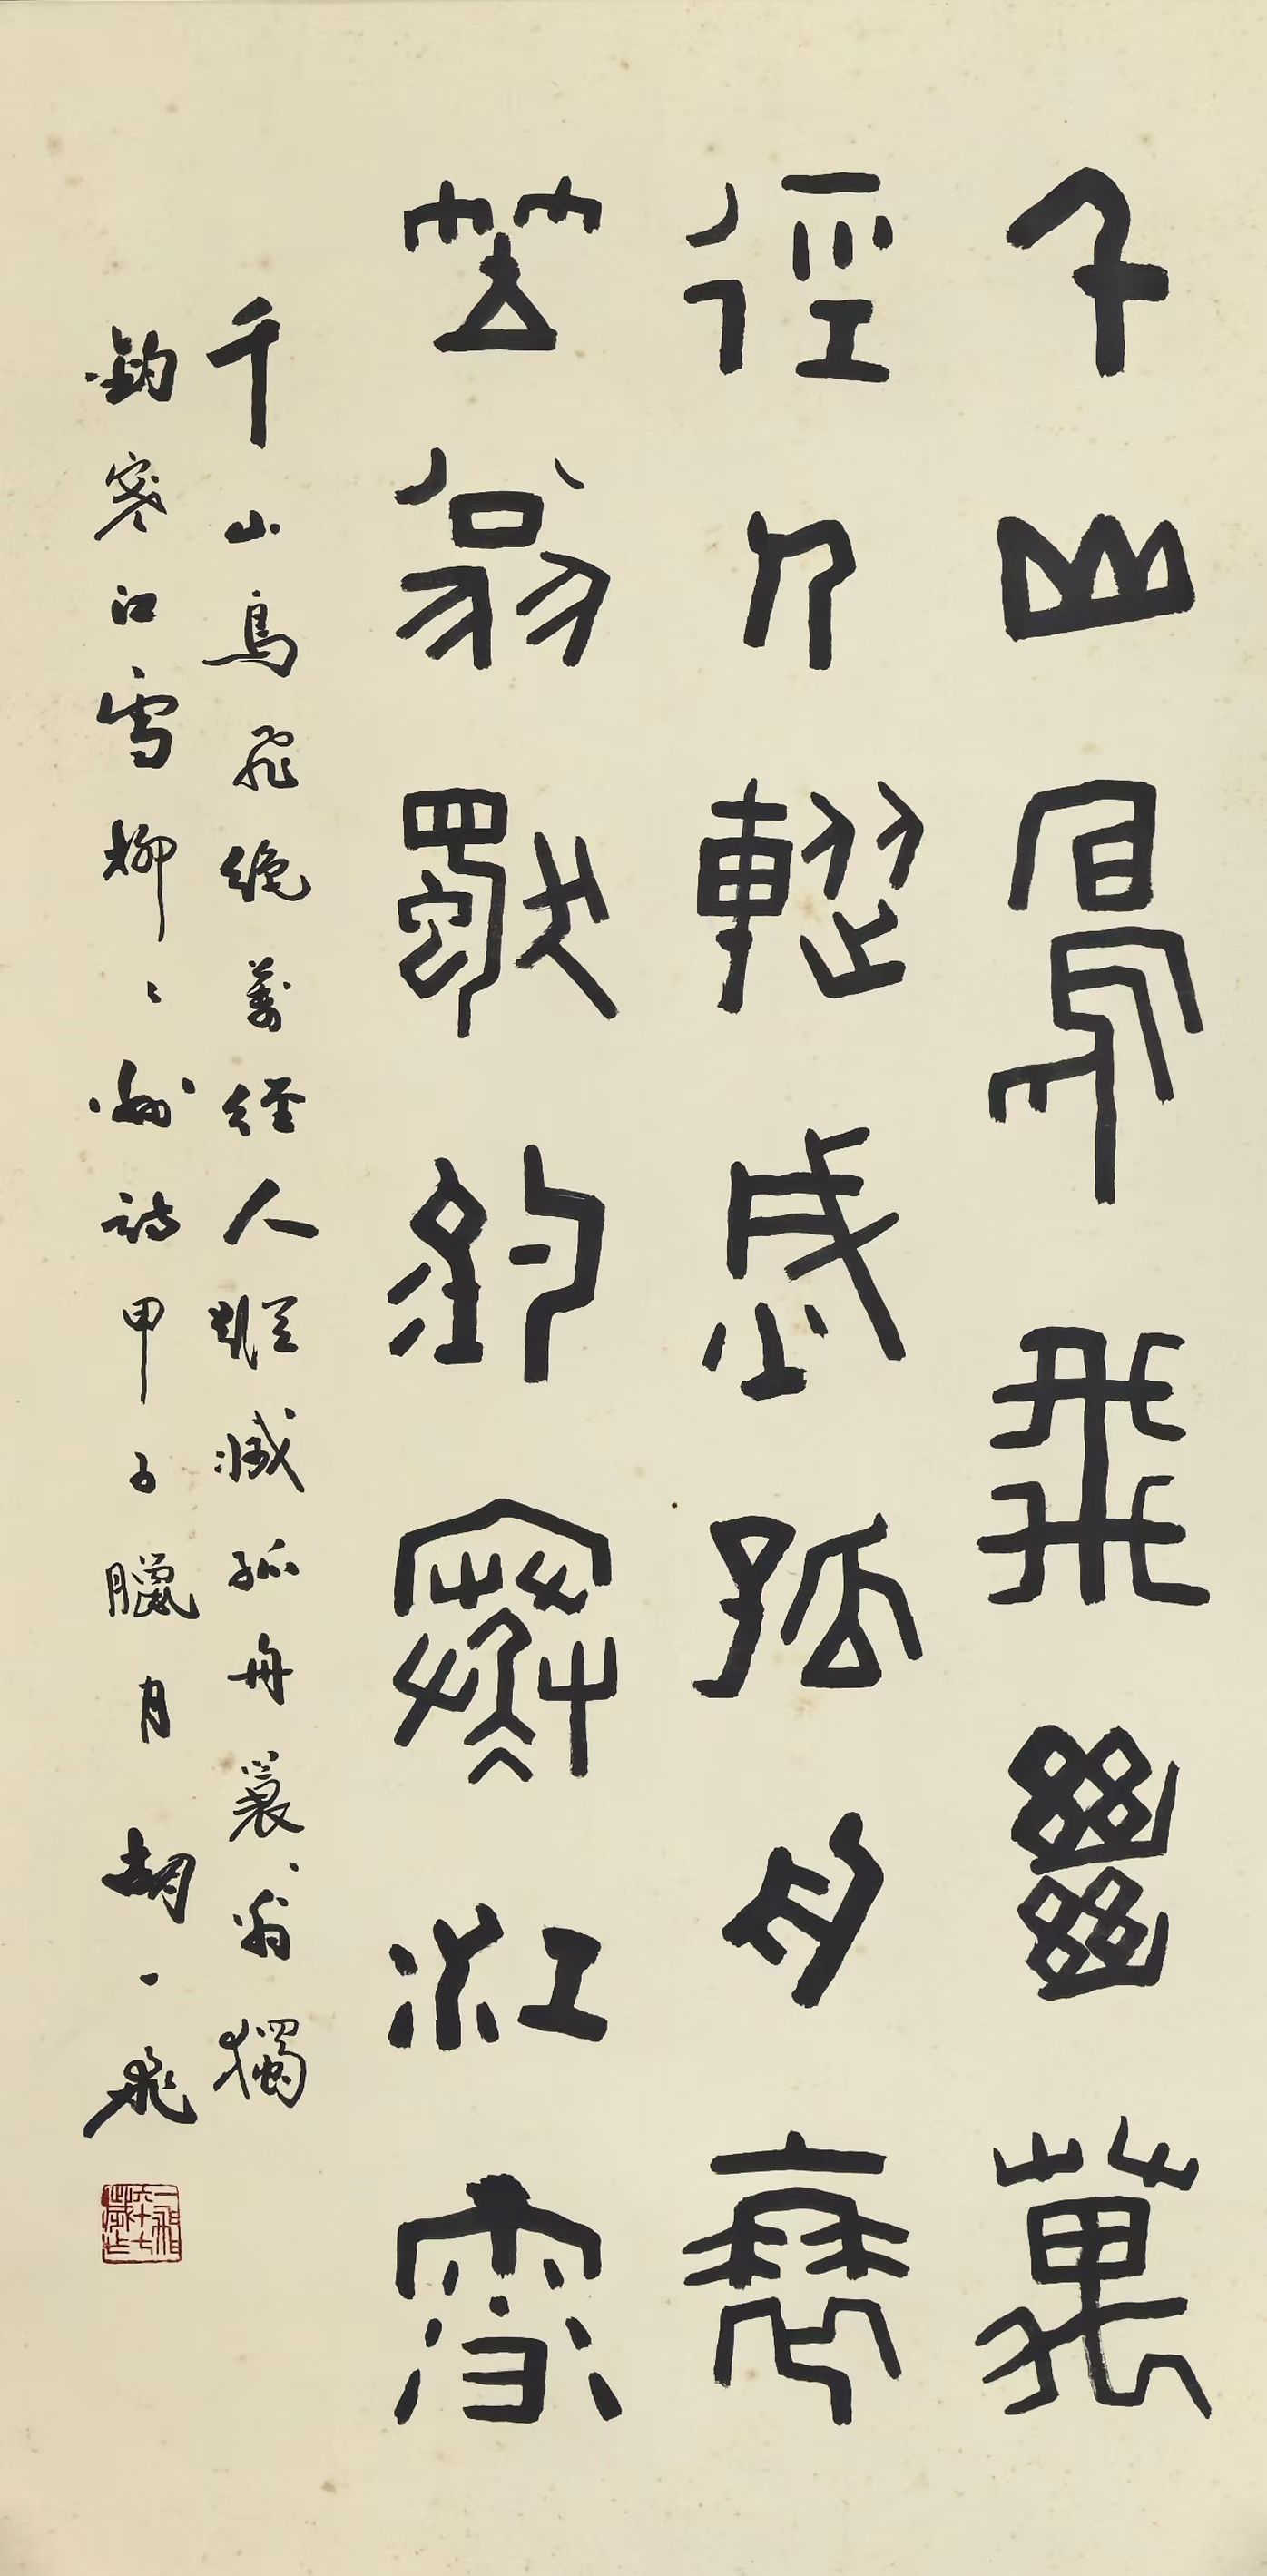 千山鳥飛絕萬
徑人蹤滅孤舟蓑
笠翁獨釣寒江雪
千山鳥飛絕萬徑人蹤滅孤舟蓑翁獨
釣寒江雪柳〻州詩甲子臘月胡一飛